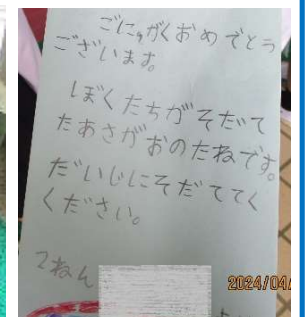 ごにゅうがくおめでとう
ございます。
ぼくたちがそだて
たあさがおのたねです。
だいじにそだててく
ださい。
2ねん
2024/04/